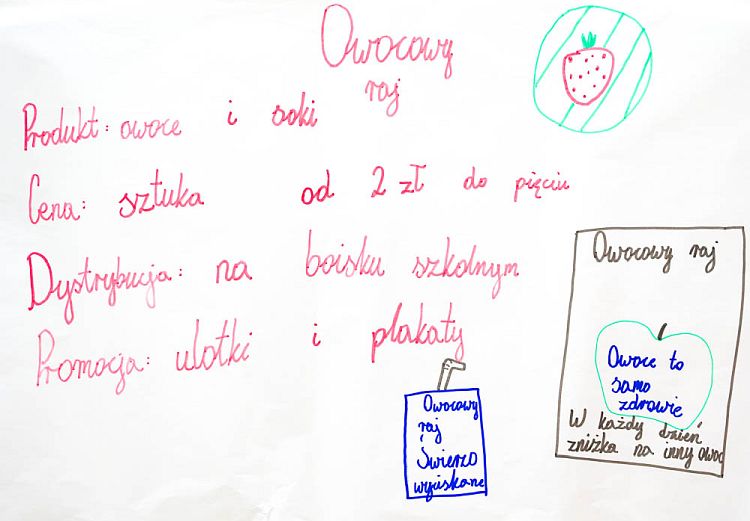 Owocowy
raj
Produkt: owoce i soki
Cena: sztuka od 2 zł do pięciu
Dystrybucja: na boisku szkolnym
Promocja: ulotki i plakaty
Owocowy
raj
Świerzo
wyciskane
Owocowy raj
Owoce to
samo
zdrowie
W każdy dzień
zniżka na inny owoc